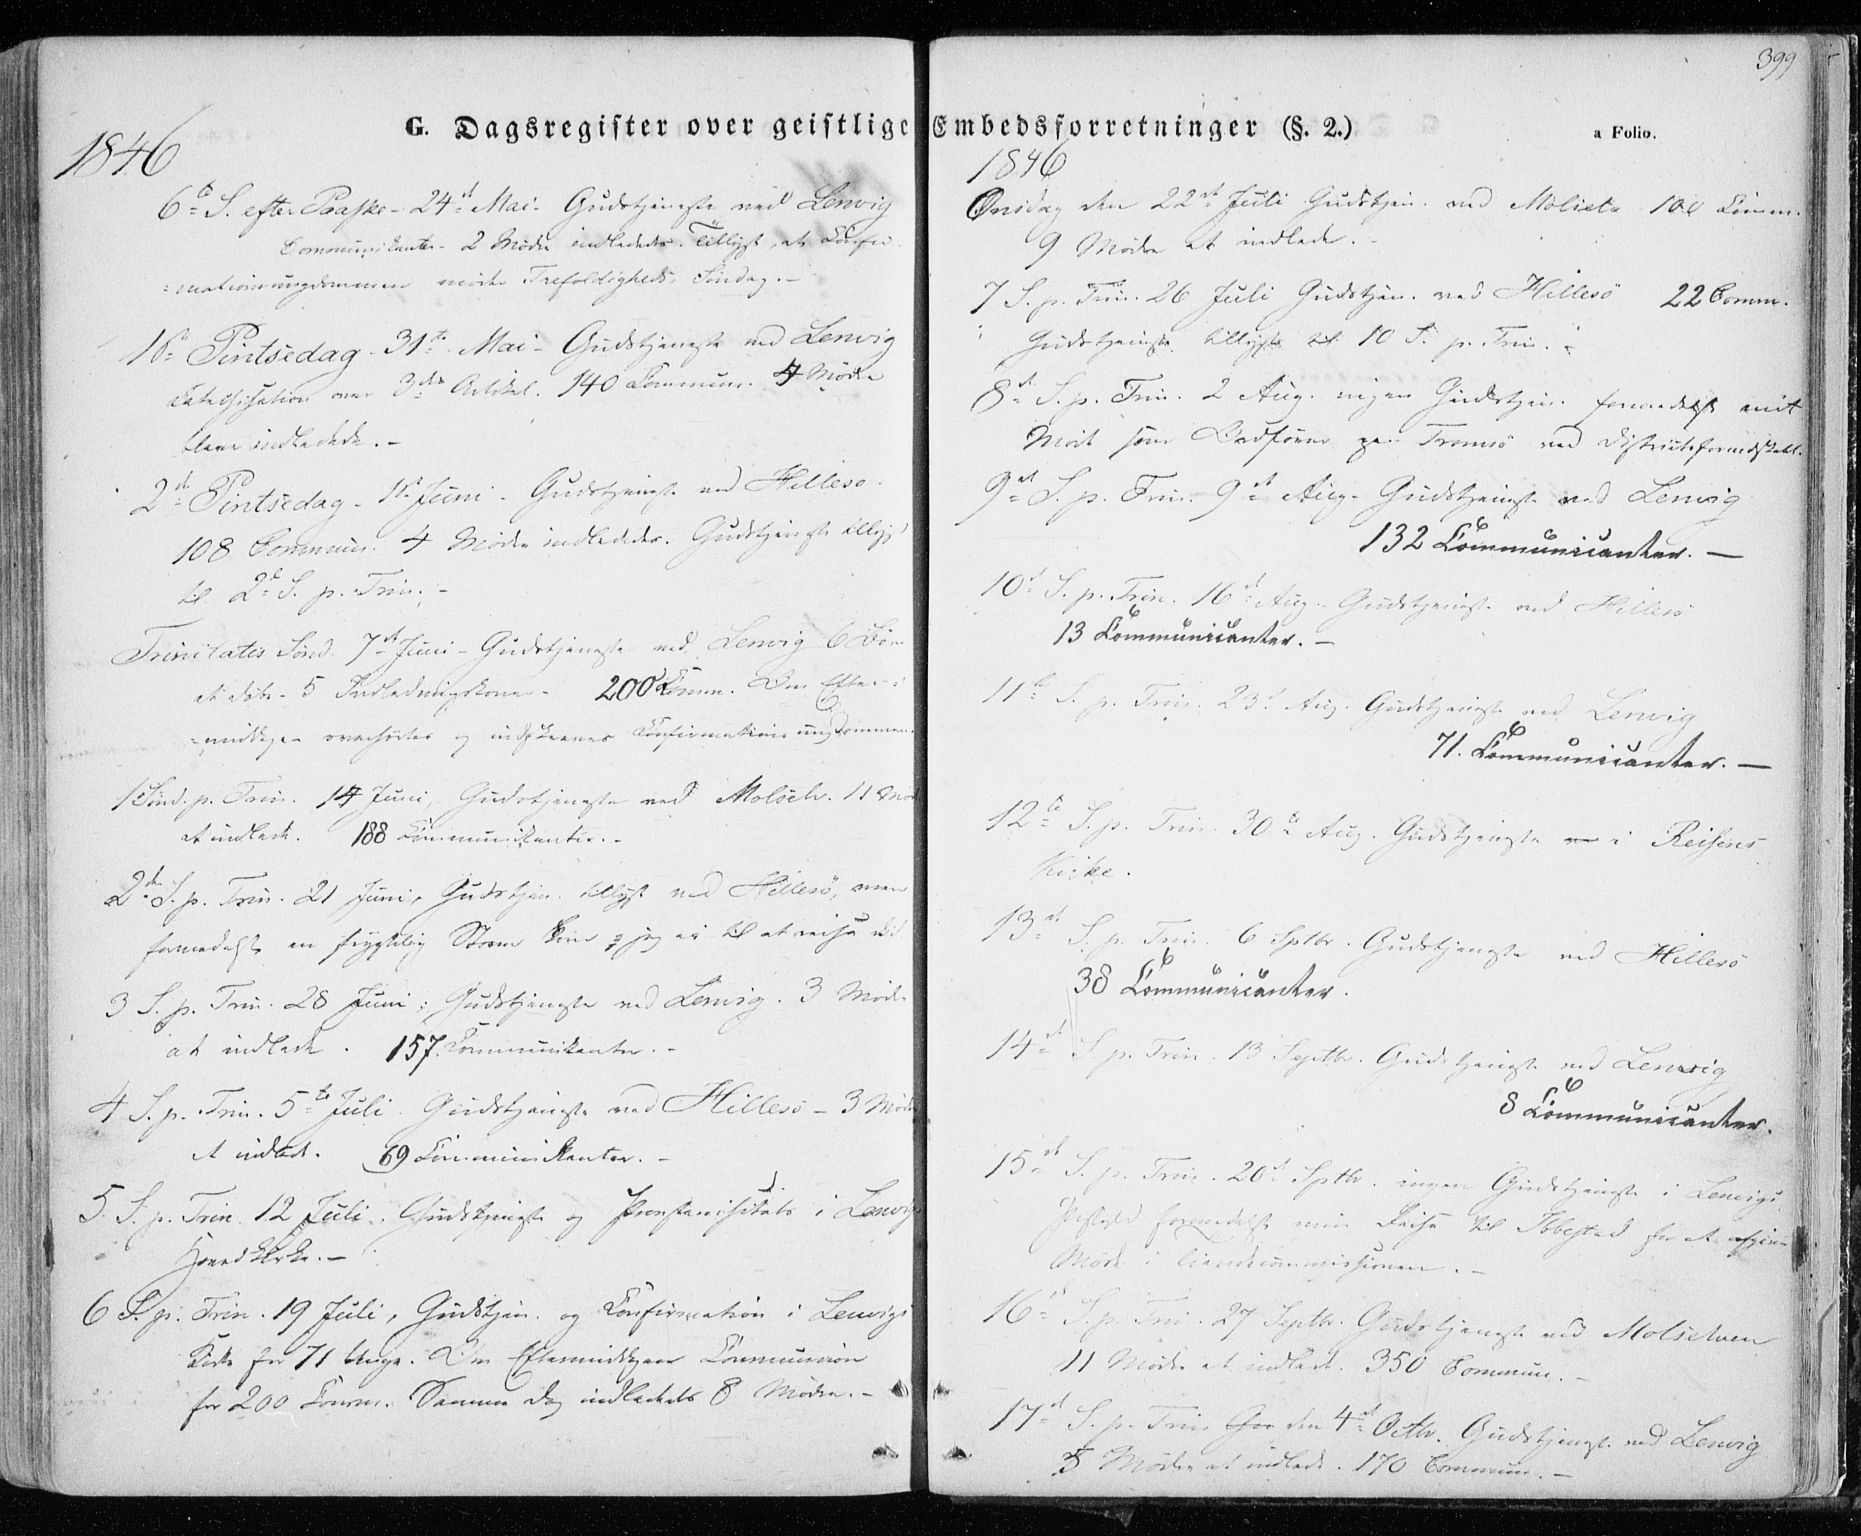 399
G. Dagsregister over geistlige Embedsforretninger (§. 2.)
a Folio.
1846
6te S. efter Paaske - 24de Mai - Gudstjeneste ved Lenvig
Communikanter - 2 Mødre indlededes. Tillyst, at Confir-
mationsungdommen møder Trefoldigheds Søndag. -
1ste Pintsedag - 31te Mai - Gudstjeneste ved Lenvig
Catechisation over 3die Artikel. 140 Commun. 4 Mødre
bleve indledede. -
2den Pintsedag - 1ste Juni - Gudstjeneste ved Hillesø.
108 Commun. 4 Mødre indlededes. Gudstjeneste tillyst
til 2den S. p. Trin. -
Trinitatis Sønd. 7de Juni - Gudstjeneste ved Lenvig 6 Børn
at døbe - 5 Indledningskoner - 200 Comm. Om Efter-
middagen overhørtes og indskreves Confirmationsungdommen.
1 Sønd. p. Trin. 14 Juni, Gudstjeneste ved Molselv. 11 Mødre
at indlede. 188 Communikanter. -
2den S. p. Trin. 21 Juni, Gudstjen. tillyst ved Hillesø, men
formedelst en frygtelig Storm kom jeg ei til at reise did
3 S. p. Trin. 28 Juni; Gudstjeneste ved Lenvig. 3 Mødre
at indlede. 157 Communikanter. -
4 S. p. Trin. 5te Juli. Gudstjeneste ved Hillesø - 3 Mødre
at indlede. 69 Communikanter. -
5 S. p. Trin. 12 Juli. Gudstjeneste og Provstevisitats i Lenvigs
Hovedkirke. -
6 S. p. Trin. 19 Juli, Gudstjen. og Confirmation i Lenvigs
Kirke for 71 Unge. Om Eftermiddagen Communion
for 200 Comm. Samme Dag indlededes 8 Mødre. -
1846
Onsdag den 22de Juli Gudstjen. ved Molselv 100 Comm.
9 Mødre at indlede. -
7 S. p. Trin. 26 Juli Gudstjen. ved Hillesø 22 Comm.
Gudstjeneste tillyst til 10 S. p. Trin. -
8de S. p. Trin. 2 Aug. ingen Gudstjen. formedelst mit
Møde som Ordfører paa Tromsø ved Districtsformandskabet.
9de S. p. Trin. 9de Aug. Gudstjeneste ved Lenvig
132 Communicanter. -
10de S. p. Trin. 16de Aug. Gudstjeneste ved Hillesø
13 Communicanter. -
11te S. p. Trin. 23de Aug. Gudstjeneste ved Lenvig
71. Communicanter. -
12te S. p. Trin. 30te Aug. Gudstjeneste i Reisens
Kirke.
13de S. p. Trin. 6 Sptbr. Gudstjeneste ved Hillesø
38 Communicanter.
14de S. p. Trin. 13 Septbr. Gudstjeneste ved Lenvig
8 Communicanter.
15de S. p. Trin. 20de Sptbr. ingen Gudstjeneste i Lenvigs
Præstegjeld formedelst min Reise til Ibbestad for at
Møde i
16de S. p. Trin. 27 Septbr. Gudstjeneste ved Molselven
11 Mødre at indlede. 350 Commun. -
17de S. p. Trin. den 4de Octbr. Gudstjenst. ved Lenvig
5 Mødre at indlede. 170 Commun. -